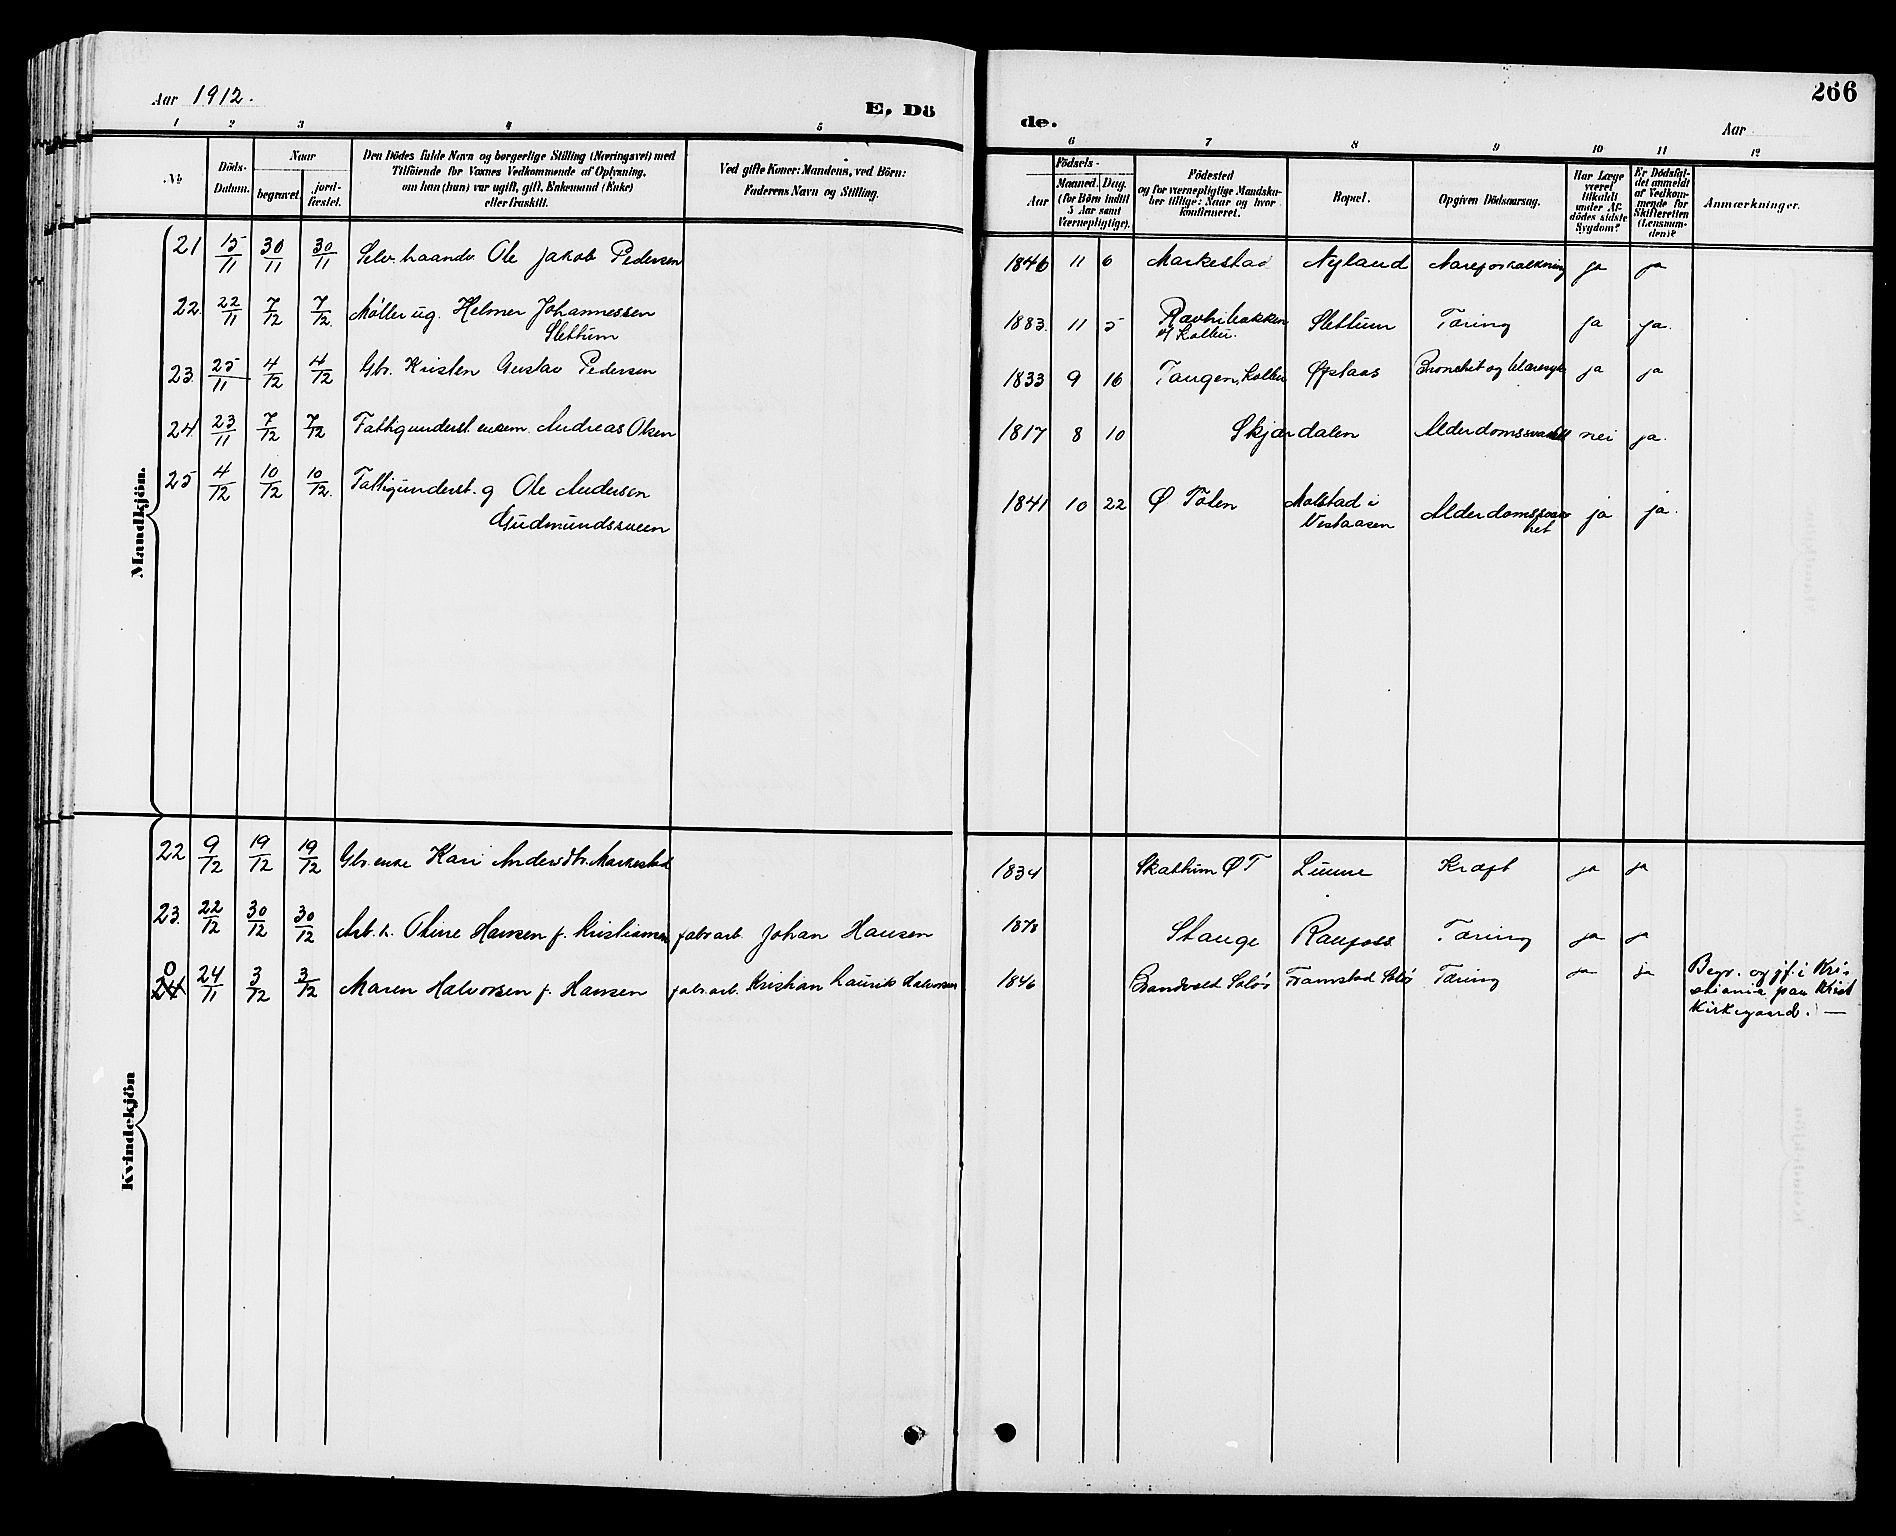 Aar 1912.
E. Dö
de.
266
Aar
1 2 3 4 5 6 7 8 9 10 11 12
No
Döds-Datum.
Naar
begravet.
jord-fæstet.
Den Dödes fulde Navn og borgerlige Stilling (Næringsvei) med
Tilföiende for Voxnes Vedkommende af Oplysning,
om han (hun) var ugift, gift, Enkemand (Enke)
eller fraskilt.
Ved gifte Koner: Mandens, ved Börn:
Faderens Navn og Stilling.
Födsels-
Aar
Maaned. Dag.
(for Börn indtil
5 Aar samt
Værnepligtige).
Födested
og for værnepligtige Mandska-
ber tillige: Naar og hvor
konfirmeret.
Bopæl.
Opgiven Dödsaarsag.
Har Læge
været
tilkaldt
under Af-
dödes sidste
Sygdom?
Er Dödsfal-
det anmeldt
af Vedkom-
mende for
Skifteretten
(Lensman-
den)?
Anmærkninger.
Mandkjön.
21 15/11 30/11 30/11 Selv. haandv. Ole Jakob Pedersen 1846 11 6 Markestad Nyland Aareforkalkning ja ja
22. 22/11 7/12 7/12. Møller ug. Helmer Johannessen
Slettum 1883. 11 5 v/ Kolbu. Slettum Tæring ja ja.
23. 25/11 4/12 4/12 Gbr. Kristen Gustav Pedersen 1833 9 16 Tangen, Kolbu Øfstaas Bronchit og blæresyk ja ja
24. 23/11 7/12 7/12 Fattigunderst. enkem. Andreas Olsen 1817 8 10 Skjærdalen nei ja.
25 4/12 10/12 10/12. Fattigunderst. g Ole Andersen
Gudmundssveen 1841 10 22 Ø Toten Molstad i
Vestaasen ja ja.
Kvindekjön
22 9/12 19/12 19/12 Gbr. enke Kari Andersdtr. Markestad 1834 Skattum Ø T Kræft ja ja
23. 22/12 30/12 30/12 Arb. h. Oline Hansen f. Kristiansen fabr arb. Johan Hansen 1878 Stange Raufoss Tæring ja ja
0
24 24/11 3/12 3/12 Maren Halvorsen f. Hansen fabr. arb. Kristian Laurits Halvorsen 1846 Brandvold Solør Framstad Solør Tæring ja ja Begr. og jf. i Kri-
stiania paa Krist
Kirkegaard. —